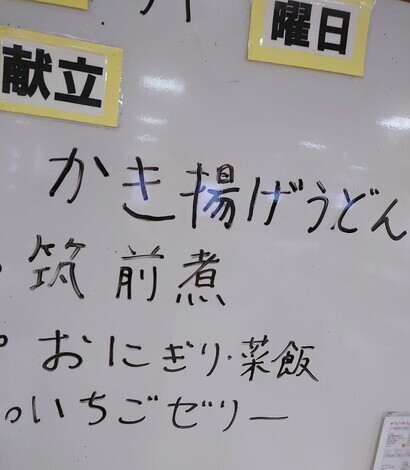 曜日
献立
かき揚げうどん
筑前煮
おにぎり・菜飯
いちごゼリー